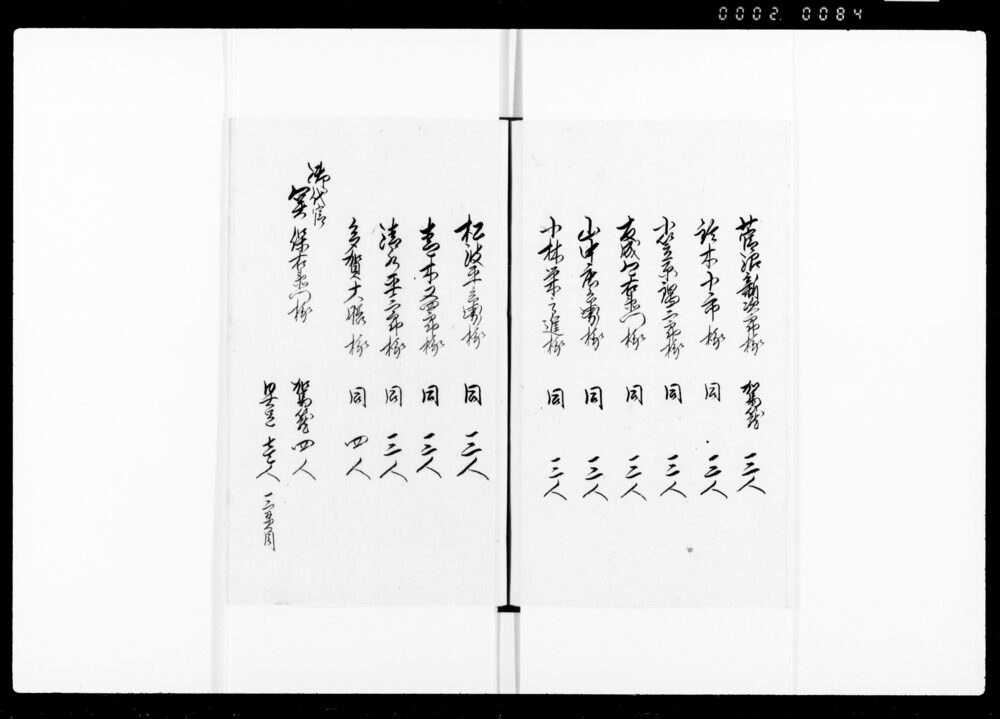 0002. 0084
菅沼新次郎様 駕籠 三人
鈴木小市様 同 三人
小笠原 三郎様 同 三人
友成 右衛門様 同 三人
山中 兵衛様 同 三人
小林栄之進様 同 三人
松波平兵衛様 同 三人
青木又四郎様 同 三人
清水平三郎様 同 三人
多賀大膳様 同 四人
御代官
保右衛門様 駕籠 四人
具足 壱人 三〆目